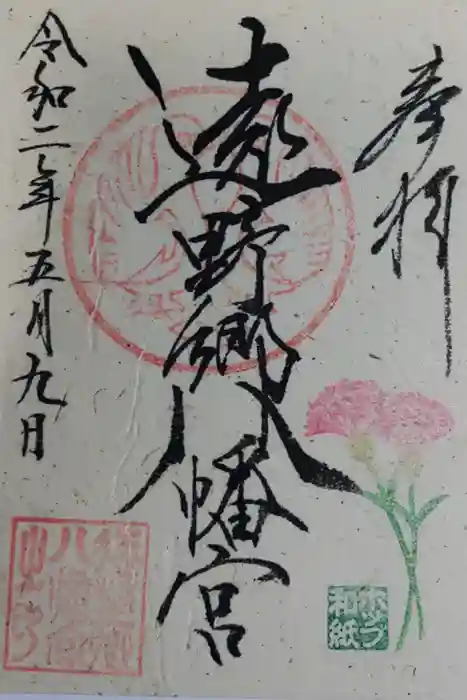 奉拝
遠野郷八幡宮
令和二年五月九日
ホップ
和紙